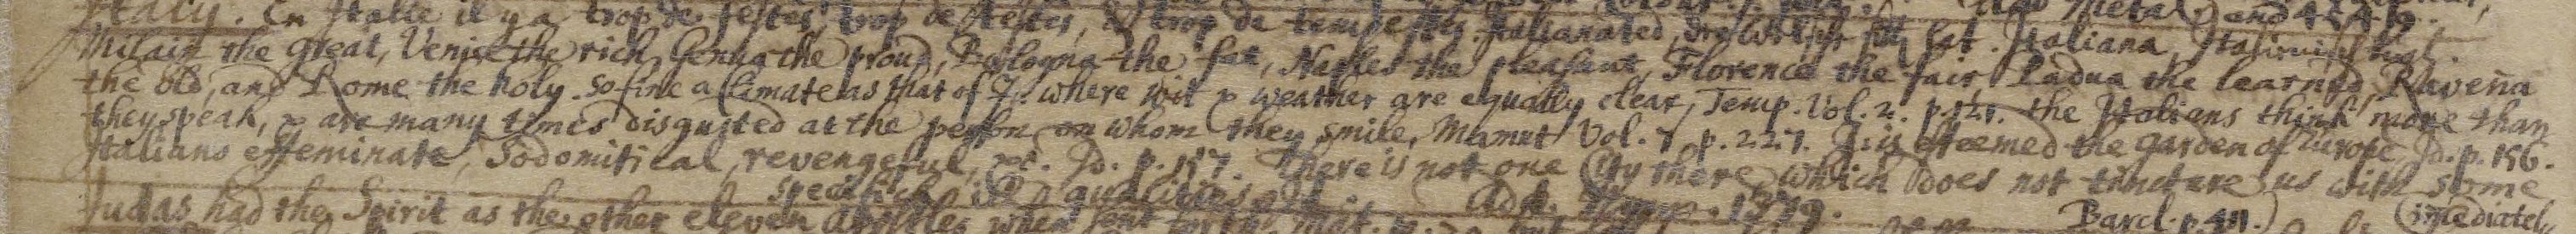 Italy. En Italie il y a trop de festes, trop de testes, & trop de tempestes. Italianated, Italiana,
Milain the great, Venise the rich, Genua the proud, Bologna the fat, Naples the pleasant, Florence the fair, Padua the learned, Ravena
the old, and Rome the holy. So fine a Climate as that of I. where wit & weather are equally clear, Temp. Vol. 2. p. 121. the Italians think more than
they speak, & are many times disgusted at the person on whom they smile, Mamut Vol. 7 p. 227. I. is esteemed the garden of Europe, Id. p. 156.
Italians effeminate, Sodomitical, revengeful, Id. p. 157. There is not one City there, which does not tincture us with some
specifick ill qualities
Judas had the Spirit as the other eleven Apostles, when sent forth, Mat. Barcl. p. 411.) imediatel